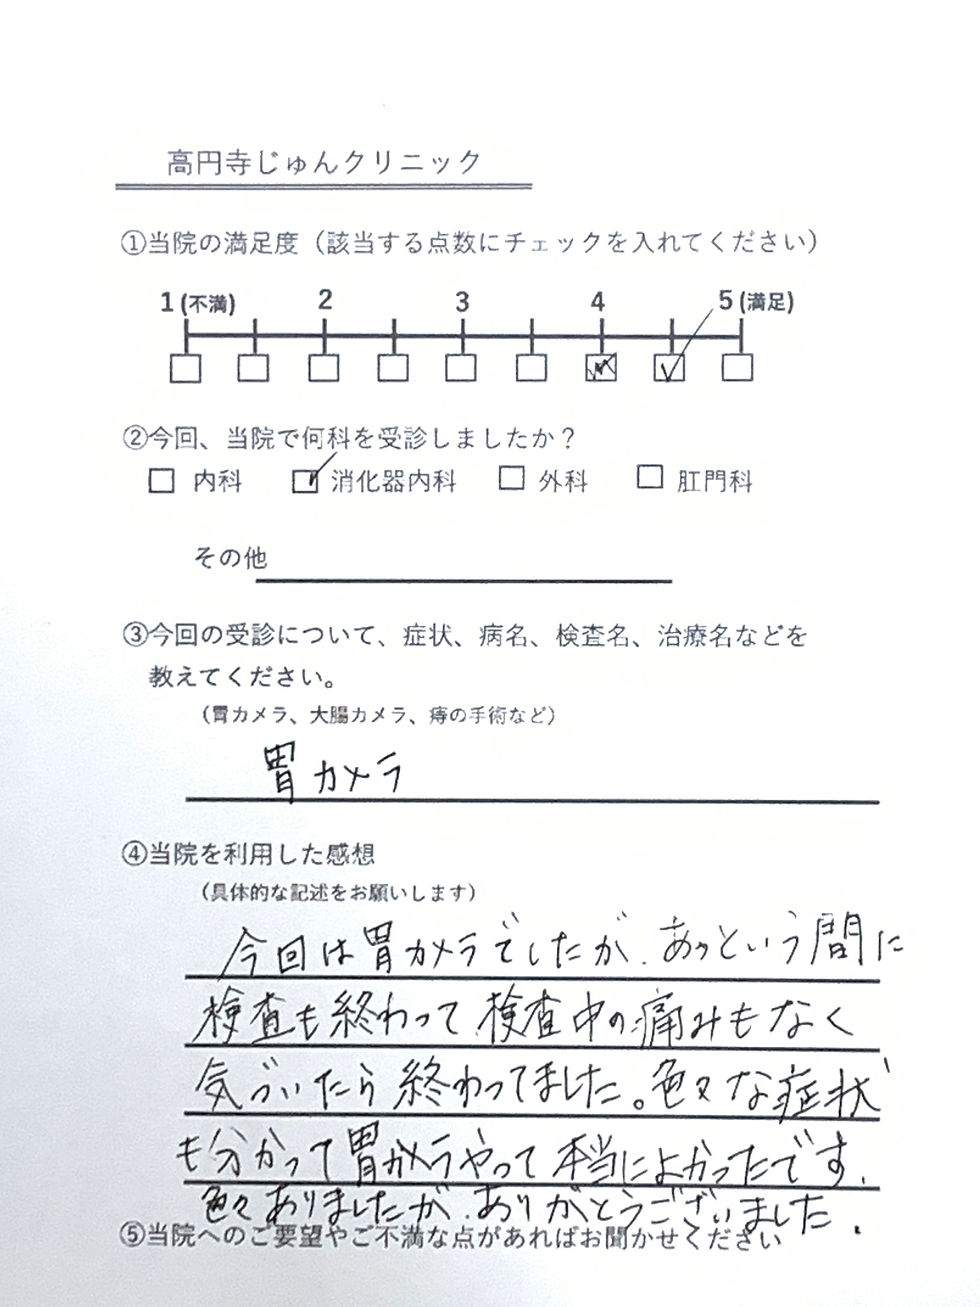 高円寺じゅんクリニック
①当院の満足度（該当する点数にチェックを入れてください）
1 (不満) 2 3 4 5 (満足)
②今回、当院で何科を受診しましたか？
内科 消化器内科 外科 肛門科
その他
③今回の受診について、症状、病名、検査名、治療名などを
教えてください。
（胃カメラ、大腸カメラ、痔の手術など）
胃カメラ
④当院を利用した感想
（具体的な記述をお願いします）
今回は胃カメラでしたが、あっという間に
検査も終わって、検査中の痛みもなく
気づいたら終わってました。色々な症状
も分かって胃カメラやって本当によかったです。
色々ありましたが、ありがとうございました。
⑤当院へのご要望やご不満な点があればお聞かせください